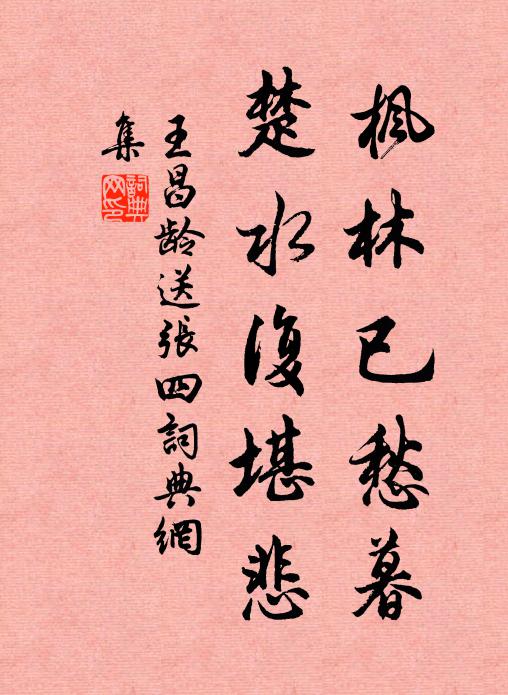 枫林已愁暮
楚水復堪悲
王昌龄送張四詞典網
集
詞典
网印